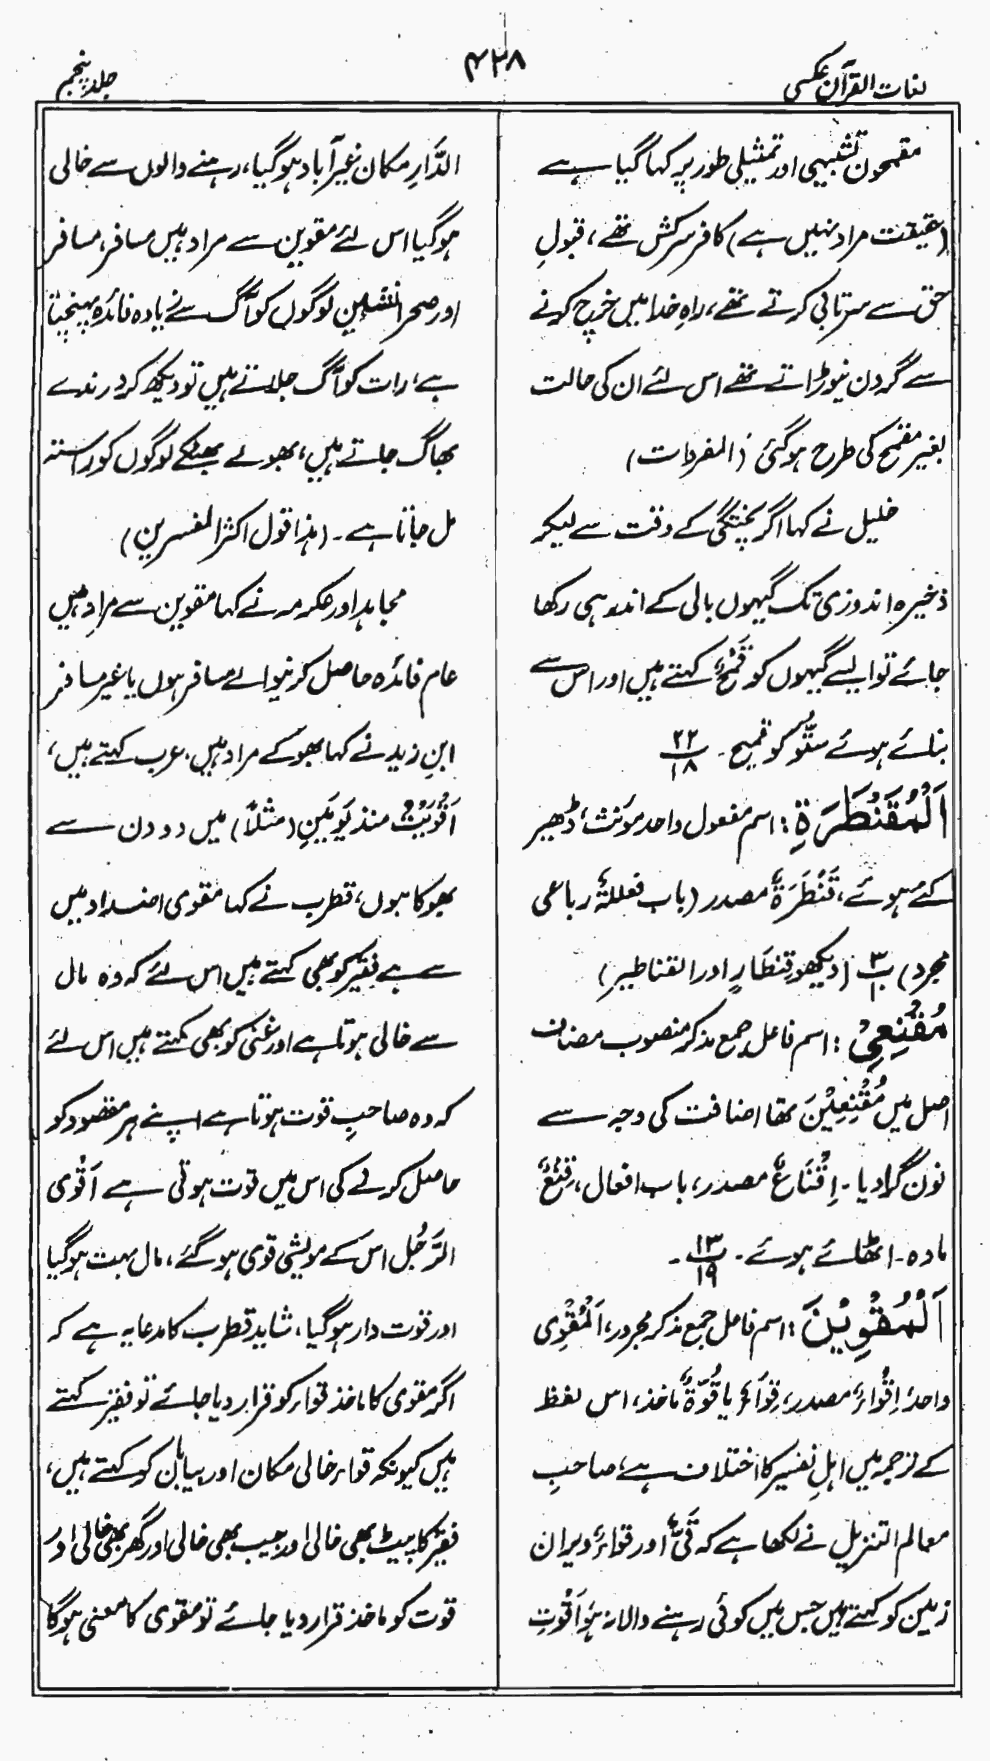 لغات القرآن عکسی
۴۲۸
جلد پنجم
مقمحون تشبیہی اور تمثیلی طور پر کہا گیا ہے
(حقیقت مراد نہیں ہے) کافر سرکش تھے، قبولِ
حق سے سرتابی کرتے تھے، راہِ خدا میں خرچ کرنے
سے گردن نیوڑاتے تھے اس لئے ان کی حالت
بعیر مقمح کی طرح ہوگئی (المفردات)
خلیل نے کہا اگر پختگی کے وقت سے لیکر
ذخیرہ اندوزی تک گیہوں بالی کے اندر ہی رکھا
جائے تو ایسے گیہوں کو قَمْحٌ کہتے ہیں اور اس سے
بنائے ہوئے ستّو کو قمیح۔ ۲۲/۱۸
اَلْمُقَنْطَرَةِ: اسم مفعول واحد مؤنث، ڈھیر
کئے ہوئے، قَنْطَرَةٌ مصدر (باب فعللۃ رباعی
مجرد) ۳/۱۰ (دیکھو قِنطَارٍ اور القناطیر)
مُقْنِعِیْ: اسم فاعل جمع مذکر منصوب مضاف
اصل میں مُقْنِعِیْنَ تھا اضافت کی وجہ سے
نون گرا دیا۔ اِقْنَاعٌ مصدر، باب افعال، قِنْعٌ
مادہ۔ اٹھائے ہوئے۔ ۱۳/۱۹۔
اَلْمُقْوِیْنَ: اسم فاعل جمع مذکر مجرور، اَلْمُقْوِی
واحد، اِقْوَاءٌ مصدر، قِوَاءٌ یا قُوَّةٌ ماخذ، اس لفظ
کے ترجمہ میں اہلِ تفسیر کا اختلاف ہے، صاحبِ
معالم التنزیل نے لکھا ہے کہ قَیٌّ اور قواء ویران
زمین کو کہتے ہیں جس میں کوئی رہنے والا نہ ہو اَقْوَتِ
الدَّارِ مکان غیر آباد ہوگیا، رہنے والوں سے خالی
ہوگیا اس لئے مقوین سے مراد ہیں مسافر، مسافر
اور صحرا نشین لوگوں کو آگ سے زیادہ فائدہ پہنچتا
ہے، رات کو آگ جلاتے ہیں تو دیکھ کر درندے
بھاگ جاتے ہیں، بھولے بھٹکے لوگوں کو راستہ
مل جاتا ہے۔ (ہذا قول اکثر المفسرین)
مجاہد اور عکرمہ نے کہا مقوین سے مراد ہیں
عام فائدہ حاصل کرنیوالے مسافر ہوں یا غیر مسافر
ابنِ زید نے کہا بھوکے مراد ہیں، عرب کہتے ہیں،
اَقْوَیْتُ منذ یَومَینِ (مثلاً) میں دو دن سے
بھوکا ہوں، قطرب نے کہا مقوی اضداد میں
سے ہے فقیر کو بھی کہتے ہیں اس لئے کہ وہ مال
سے خالی ہوتا ہے اور غنی کو بھی کہتے ہیں اس لئے
کہ وہ صاحبِ قوت ہوتا ہے اپنے ہر مقصود کو
حاصل کرنے کی اس میں قوت ہوتی ہے اَقْوَی
الرَّجُل اس کے مویشی قوی ہوگئے، مال بہت ہوگیا
اور قوت دار ہوگیا، شاید قطرب کا مدعا یہ ہے کہ
اگر مقوی کا ماخذ قواء کو قرار دیا جائے تو فقیر کہتے
ہیں کیونکہ قواء خالی مکان اور بیابان کو کہتے ہیں،
فقیر کا پیٹ بھی خالی اور جیب بھی خالی اور گھر بھی خالی اور
قوت کو ماخذ قرار دیا جائے تو مقوی کا معنی ہوگا